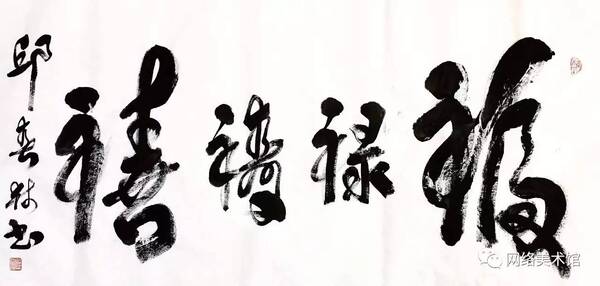 福禄祷禧
邱春林书
网络美术馆